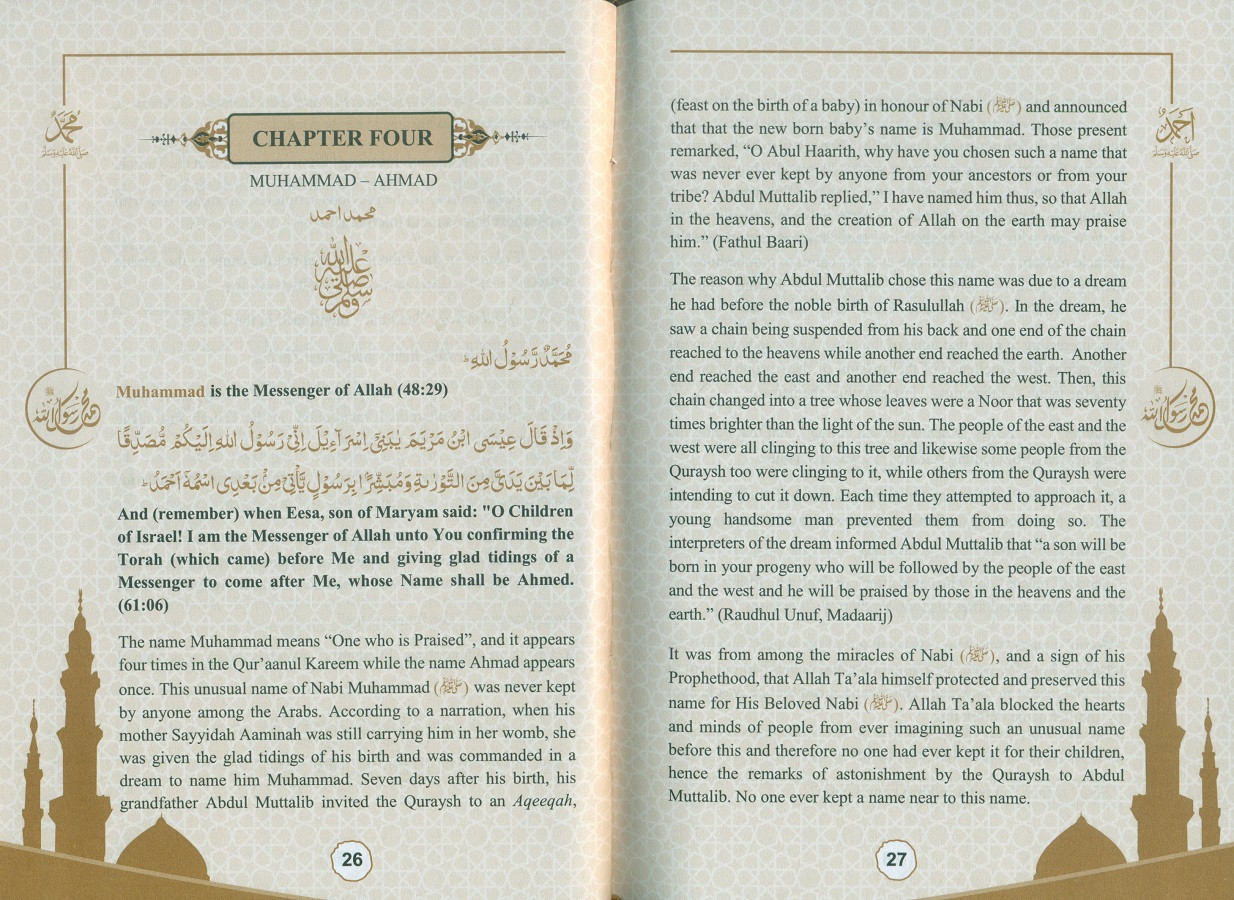 CHAPTER FOUR
MUHAMMAD – AHMAD
محمد احمد
صلى الله عليه وسلم
مُحَمَّدٌ رَّسُوۡلُ اللهِ ؕ
Muhammad is the Messenger of Allah (48:29)
وَاِذۡ قَالَ عِيۡسَى ابۡنُ مَرۡيَمَ يٰبَنِىۡۤ اِسۡرَآءِيۡلَ اِنِّىۡ رَسُوۡلُ اللهِ اِلَيۡكُمۡ مُّصَدِّقًا
لِّمَا بَيۡنَ يَدَىَّ مِنَ التَّوۡرٰٮةِ وَمُبَشِّرًۢا بِرَسُوۡلٍ يَّاۡتِىۡ مِنۡۢ بَعۡدِى اسۡمُهٗۤ اَحۡمَدُ ؕ
And (remember) when Eesa, son of Maryam said: "O Children
of Israel! I am the Messenger of Allah unto You confirming the
Torah (which came) before Me and giving glad tidings of a
Messenger to come after Me, whose Name shall be Ahmed.
(61:06)
The name Muhammad means “One who is Praised”, and it appears
four times in the Qur’aanul Kareem while the name Ahmad appears
once. This unusual name of Nabi Muhammad (ﷺ) was never kept
by anyone among the Arabs. According to a narration, when his
mother Sayyidah Aaminah was still carrying him in her womb, she
was given the glad tidings of his birth and was commanded in a
dream to name him Muhammad. Seven days after his birth, his
grandfather Abdul Muttalib invited the Quraysh to an Aqeeqah,
26
مُحَمَّدٌ
صلى الله عليه وسلم
محمد رسول الله
(feast on the birth of a baby) in honour of Nabi (ﷺ) and announced
that that the new born baby’s name is Muhammad. Those present
remarked, “O Abul Haarith, why have you chosen such a name that
was never ever kept by anyone from your ancestors or from your
tribe? Abdul Muttalib replied,” I have named him thus, so that Allah
in the heavens, and the creation of Allah on the earth may praise
him.” (Fathul Baari)
The reason why Abdul Muttalib chose this name was due to a dream
he had before the noble birth of Rasulullah (ﷺ). In the dream, he
saw a chain being suspended from his back and one end of the chain
reached to the heavens while another end reached the earth. Another
end reached the east and another end reached the west. Then, this
chain changed into a tree whose leaves were a Noor that was seventy
times brighter than the light of the sun. The people of the east and the
west were all clinging to this tree and likewise some people from the
Quraysh too were clinging to it, while others from the Quraysh were
intending to cut it down. Each time they attempted to approach it, a
young handsome man prevented them from doing so. The
interpreters of the dream informed Abdul Muttalib that “a son will be
born in your progeny who will be followed by the people of the east
and the west and he will be praised by those in the heavens and the
earth.” (Raudhul Unuf, Madaarij)
It was from among the miracles of Nabi (ﷺ), and a sign of his
Prophethood, that Allah Ta’ala himself protected and preserved this
name for His Beloved Nabi (ﷺ). Allah Ta’ala blocked the hearts
and minds of people from ever imagining such an unusual name
before this and therefore no one had ever kept it for their children,
hence the remarks of astonishment by the Quraysh to Abdul
Muttalib. No one ever kept a name near to this name.
27
أَحْمَدُ
صلى الله عليه وسلم
محمد رسول الله